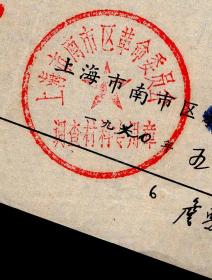 上海市南市区革命委员会
调查材料专用章
上海市南市区
一九六〇年
五
6